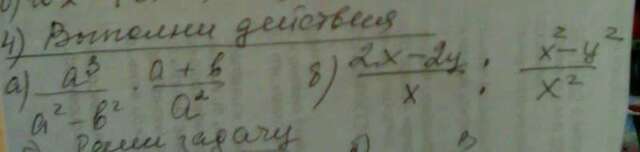 4) Выполни действия
а) a³/(a² - b²) · (a + b)/a²   б) (2x - 2y)/x : (x² - y²)/x²
задачу